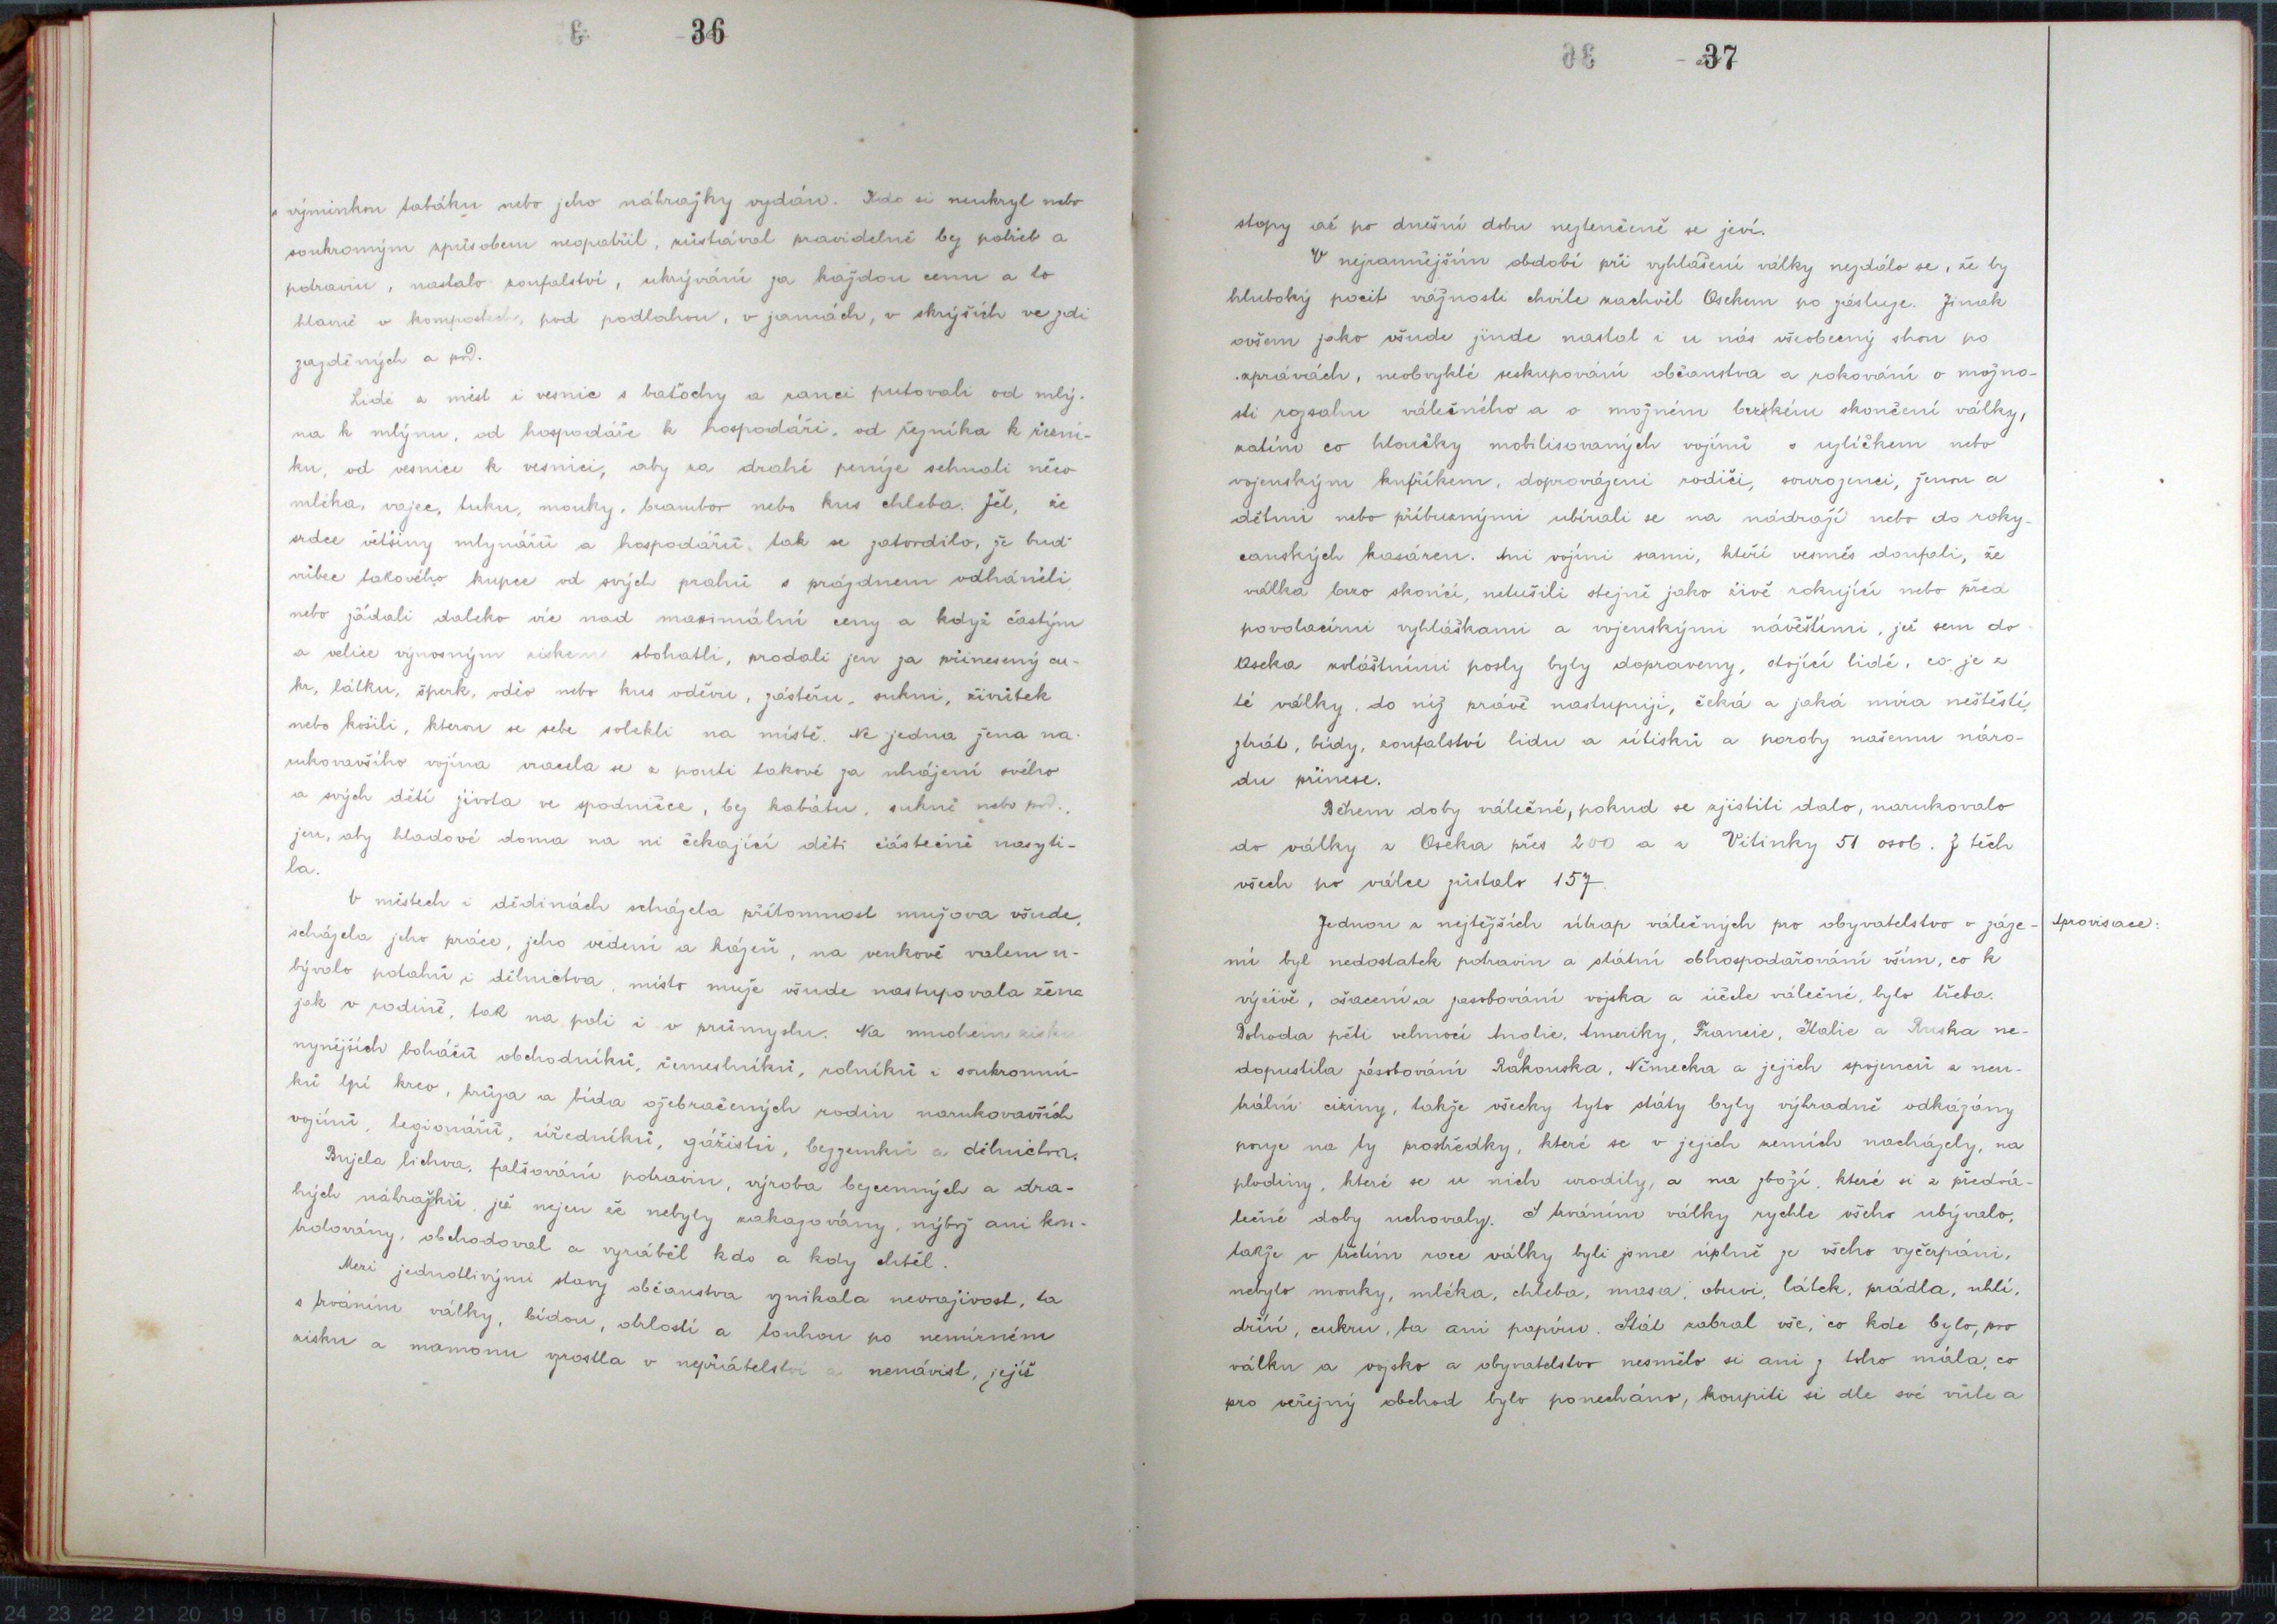 36
s výminkou tabáku nebo jeho náhražky vydán. Kdo si neukryl nebo
soukromým způsobem neopatřil, zůstával pravidelně bez potřeb a
potravin, nastalo zoufalství, ukrývání za každou cenu a to
hlavně v kompostech, pod podlahou, v jamách, v skrýších ve zdi
zazděných a pod.
Lidé z měst i vesnic s baťochy a ranci putovali od mlý-
na k mlýnu, od hospodáře k hospodáři, od řezníka k řezní-
ku, od vesnice k vesnici, aby za drahé peníze sehnali něco
mléka, vajec, tuku, mouky, brambor nebo kus chleba. Žel, že
srdce většiny mlynářů a hospodářů tak se zatvrdilo, že buď
vůbec takového kupce od svých prahů s prázdnem odháněli
nebo žádali daleko víc nad maximální ceny a když častým
a velice výnosným ziskem zbohatli, prodali jen za přinesený cu-
kr, látku, šperk, oděv nebo kus oděvu, zástěru, sukni, živůtek
nebo košili, kterou se sebe svlekli na místě. Ne jedna žena na-
rukovavšího vojína vracela se z pouti takové za uhájení svého
a svých dětí života ve spodničce, bez kabátu, sukně nebo pod.,
jen, aby hladové doma na ni čekající děti částečně nasyti-
la.
V městech i dědinách scházela přítomnost mužova všude,
scházela jeho práce, jeho vedení a kázeň, na venkově valem u-
bývalo potahů i dělnictva, místo muže všude nastupovala žena
jak v rodině, tak na poli i v průmyslu. Na mnohém zisku
nynějších boháčů obchodníků, řemeslníků, rolníků i soukromní-
ků lpí krev, hrůza a bída ožebračených rodin narukovavších
vojínů, legionářů, úředníků, gážistů, bezzemků a dělnictva.
Bujela lichva, falšování potravin, výroba bezcenných a dra-
hých náhražků, jež nejen že nebyly zakazovány, nýbrž ani kon-
trolovány, obchodoval a vyráběl kdo a kdy chtěl.
Mezi jednotlivými stavy občanstva vznikala nevraživost, ta
s trváním války, bídou, otrlostí a touhou po nemírném
zisku a mamonu vzrostla v nepřátelství a nenávist, jejíž
37
stopy až po dnešní dobu neztenčeně se jeví.
V nejrannějším období při vyhlášení války nezdálo se, že by
hluboký pocit vážnosti chvíle zachvěl Osekem po zásluze. Jinak
ovšem jako všude jinde nastal i u nás všeobecný shon po
zprávách, neobvyklé seskupování občanstva a rokování o možno-
sti rozsahu válečného a o možném brzkém skončení války,
zatím co hloučky mobilisovaných vojínů s uzlíčkem nebo
vojenským kufříkem, doprovázeni rodiči, sourozenci, ženou a
dětmi nebo příbuznými ubírali se na nádraží nebo do roky-
canských kasáren. Ani vojíni sami, kteří vesměs doufali, že
válka brzo skončí, netušili stejně jako živě rokující nebo před
povolacími vyhláškami a vojenskými návěštími, jež sem do
Oseka zvláštními posly byly dopraveny, stojící lidé, co je z
té války, do níž právě nastupují, čeká a jaká míra neštěstí,
ztrát, bídy, zoufalství lidu a útisků a poroby našemu náro-
du přinese.
Během doby válečné, pokud se zjistiti dalo, narukovalo
do války z Oseka přes 200 a z Vitinky 51 osob. Z těch
všech po válce zůstalo 157.
Jednou z nejtěžších útrap válečných pro obyvatelstvo v záze-
Aprovisace:
mí byl nedostatek potravin a státní obhospodařování vším, co k
výživě, ošacení a zasobování vojska a účele válečné, bylo třeba.
Dohoda pěti velmocí Anglie, Ameriky, Francie, Italie a Ruska ne-
dopustila zásobování Rakouska, Německa a jejich spojenců z neu-
trální ciziny, takže všecky tyto státy byly výhradně odkázány
pouze na ty prostředky, které se v jejich zemích nacházely, na
plodiny, které se u nich urodily, a na zboží, které si z předvá-
lečné doby uchovaly. S trváním války rychle všeho ubývalo,
takže v třetím roce války byli jsme úplně ze všeho vyčerpáni,
nebylo mouky, mléka, chleba, masa, obuvi, látek, prádla, uhlí,
dříví, cukru, ba ani papíru. Stát zabral vše, co kde bylo, pro
válku a vojsko a obyvatelstvo nesmělo si ani z toho mála, co
pro veřejný obchod bylo ponecháno, koupiti si dle své vůle a